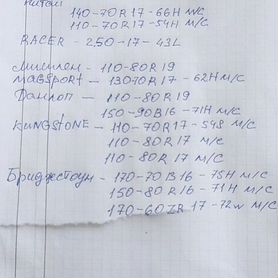 Китай
140-70R17-66H м/с
110-70R17-54H м/с
RACER - 2.50-17-43L
Мишлен - 110-80R19
MAGSPORT - 13070R17-62H м/с
Данлоп - 110-80R19
150-90B16-71H м/с
KUNGSTONE - 110-70R17-54S м/с
110-80R17 м/с
110-80R17 м/с
Бриджстоун - 170-70B16-75H м/с
150-80R16-71H м/с
170-60ZR17-72W м/с